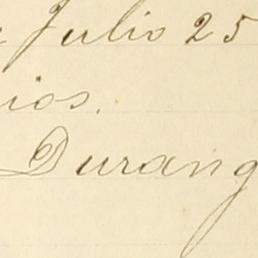 Julio 25
ios.
Durang